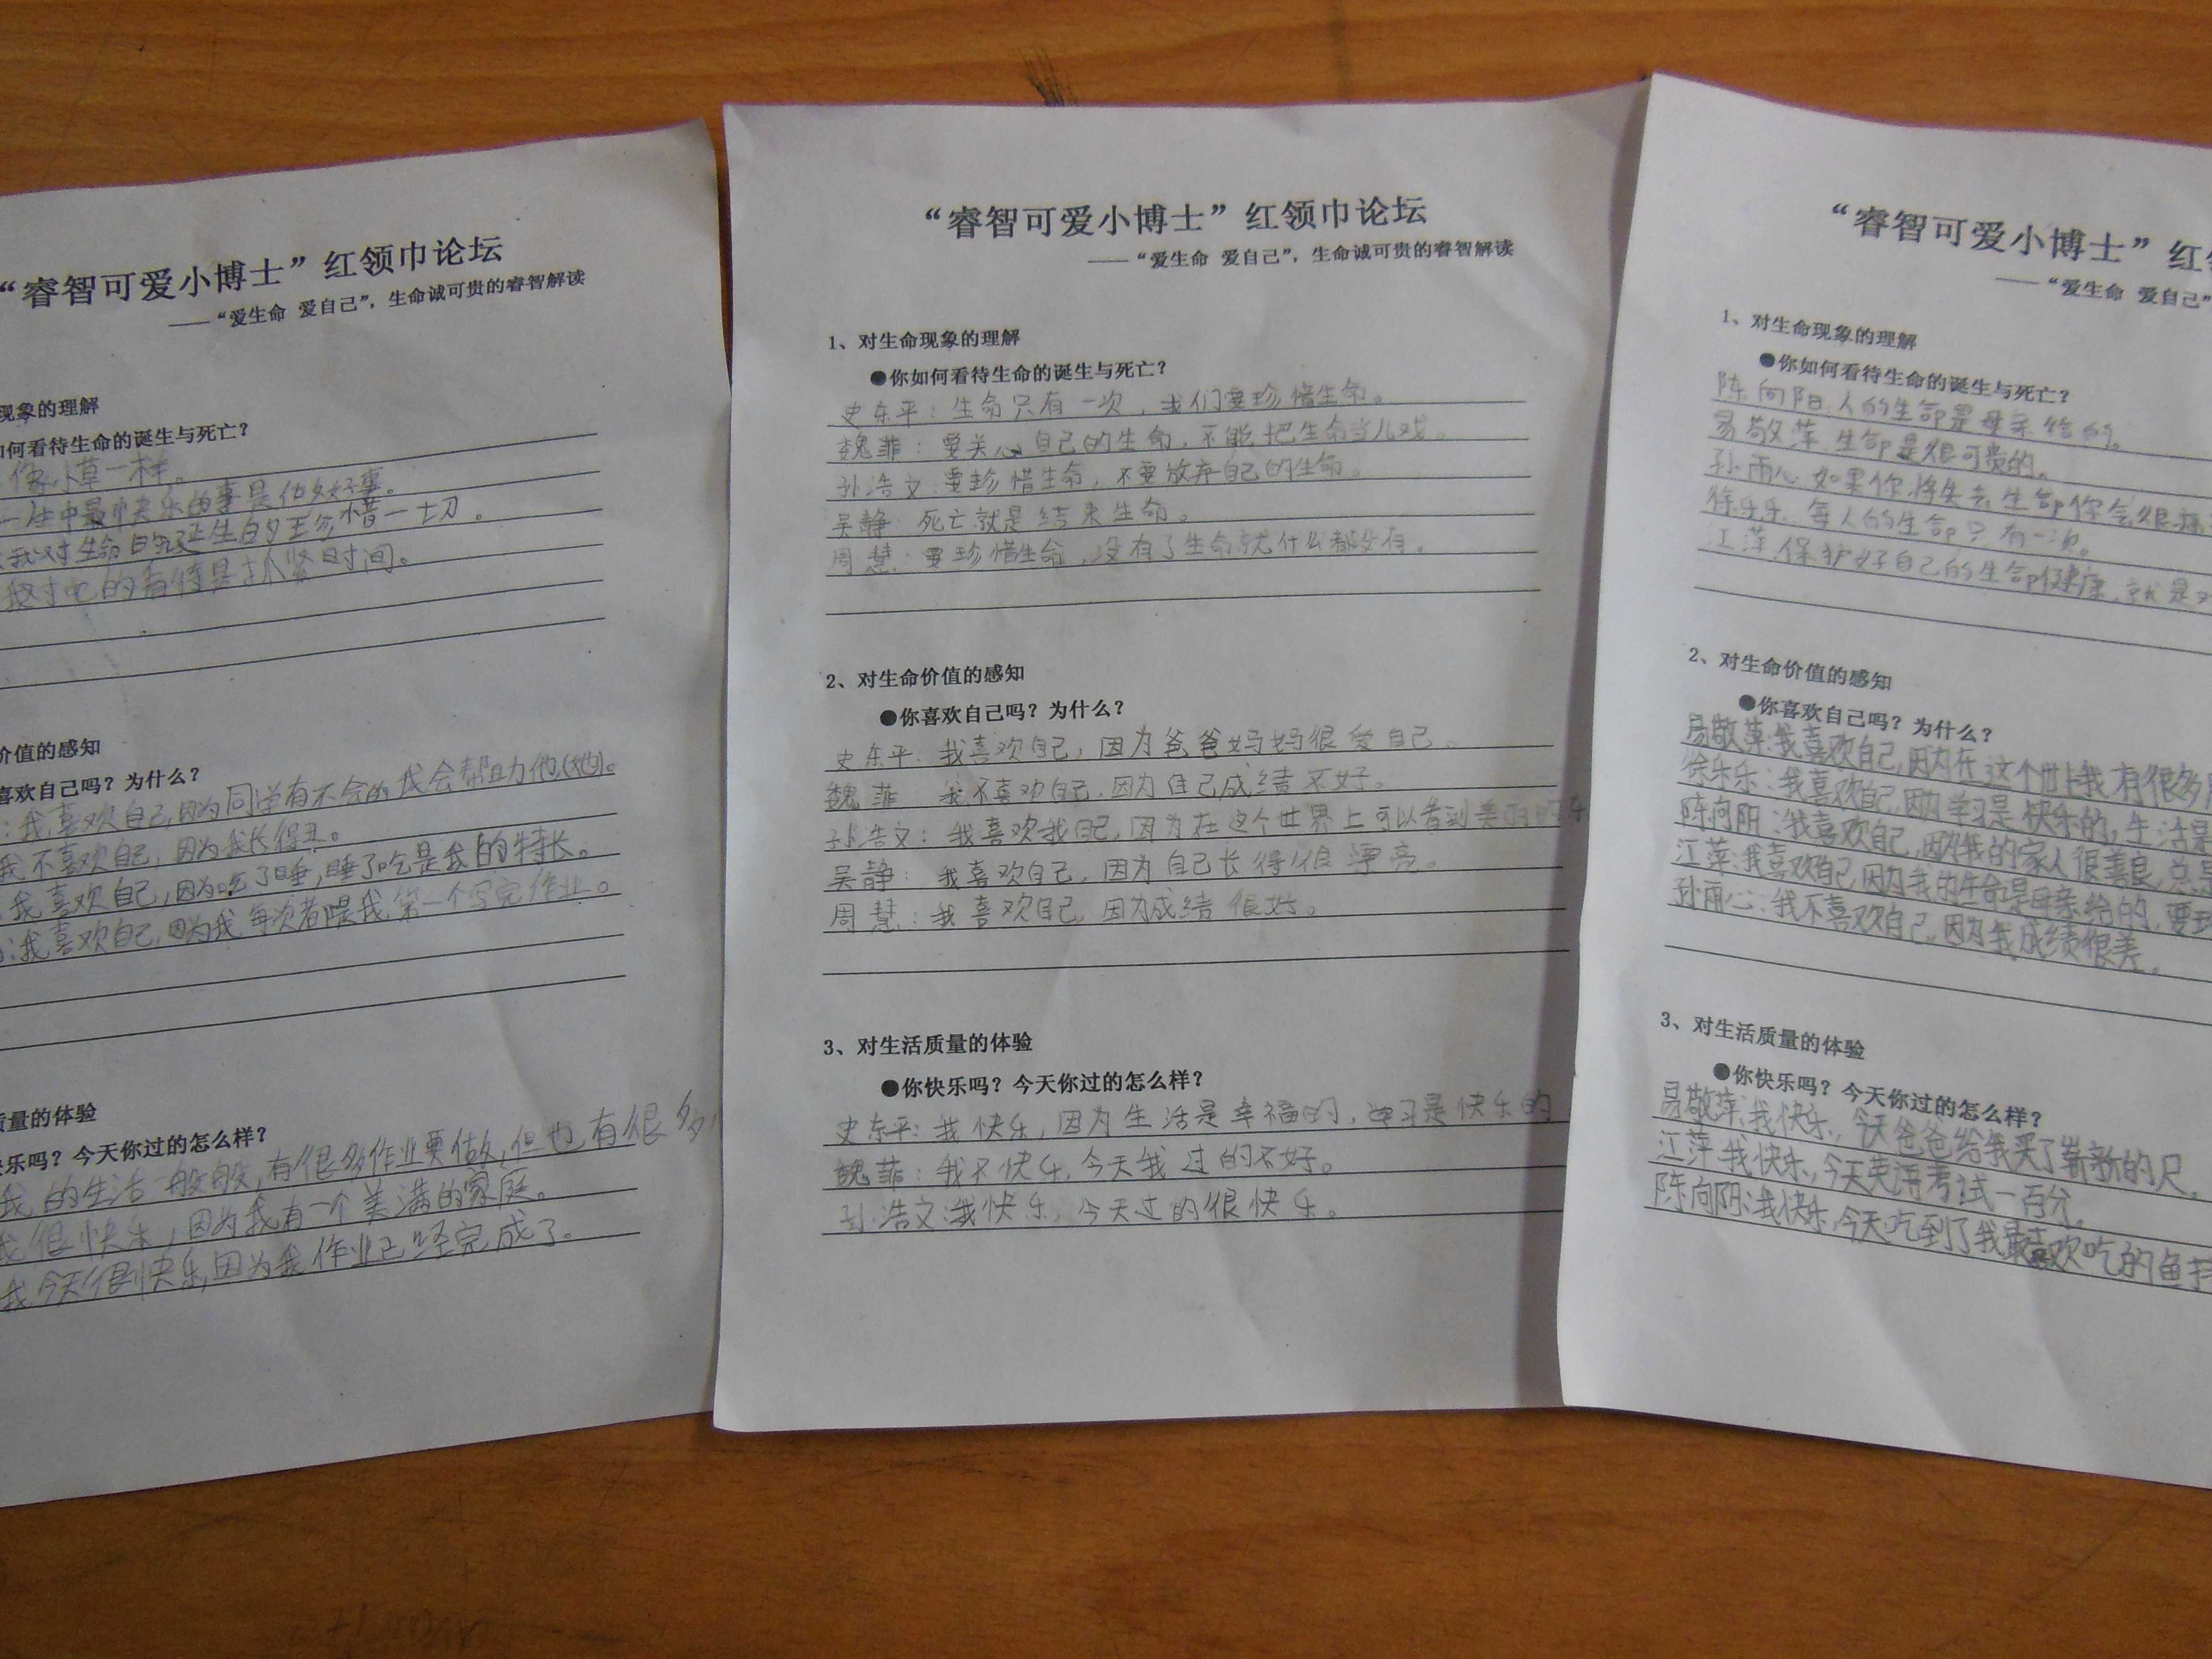 “睿智可爱小博士”红领巾论坛
——“爱生命 爱自己”，生命诚可贵的睿智解读
现象的理解
如何看待生命的诞生与死亡？
像小草一样。
一生中最快乐的事是做好事。
我对生命的诞生的 惜一切。
我对它的看待是抓紧时间。
价值的感知
喜欢自己吗？为什么？
：我喜欢自己,因为同学有不会的我会帮助他(她)。
我不喜欢自己，因为我长得丑。
：我喜欢自己，因为吃了睡，睡了吃是我的特长。
：我喜欢自己，因为我每次都是我第一个写完作业。
质量的体验
乐吗？今天你过的怎么样？
我的生活一般般，有很多作业要做，但也有很多
我很快乐，因为我有一个美满的家庭。
我今天很快乐，因为我作业已经完成了。
“睿智可爱小博士”红领巾论坛
——“爱生命 爱自己”，生命诚可贵的睿智解读
1、对生命现象的理解
●你如何看待生命的诞生与死亡？
史东平：生命只有一次，我们要珍惜生命。
魏菲：要关心自己的生命，不能把生命当儿戏。
孙浩文：要珍惜生命，不要放弃自己的生命。
吴静：死亡就是结束生命。
周慧：要珍惜生命，没有了生命就什么都没有。
2、对生命价值的感知
●你喜欢自己吗？为什么？
史东平：我喜欢自己，因为爸爸妈妈很爱自己。
魏菲 我不喜欢自己，因为自己成绩不好。
孙浩文：我喜欢我自己，因为在这个世界上可以看到美丽的
吴静：我喜欢自己，因为自己长得很漂亮。
周慧：我喜欢自己，因为成绩很好。
3、对生活质量的体验
●你快乐吗？今天你过的怎么样？
史东平：我快乐，因为生活是幸福的，学习是快乐的
魏菲：我不快乐，今天我过的不好。
孙浩文：我快乐，今天过的很快乐。
“睿智可爱小博士”红
——“爱生命 爱自己”
1、对生命现象的理解
●你如何看待生命的诞生与死亡？
陈向阳：人的生命是母亲给的。
易敬萍：生命是很可贵的。
孙雨心：如果你将失去生命你会很
徐乐乐：每人的生命只有一次。
江萍：保护好自己的生命健康，就是对
2、对生命价值的感知
●你喜欢自己吗？为什么？
易敬萍：我喜欢自己，因为在这个世上我有很多
徐乐乐：我喜欢自己，因为学习是快乐的，生活是
陈向阳：我喜欢自己，因为我的家人很善良，总是
江萍：我喜欢自己，因为我的生命是母亲给的，要珍
孙雨心：我不喜欢自己，因为我成绩很差。
3、对生活质量的体验
●你快乐吗？今天你过的怎么样？
易敬萍：我快乐，今天爸爸给我买了崭新的尺。
江萍：我快乐，今天英语考试一百分。
陈向阳：我快乐，今天吃到了我最喜欢吃的鱼